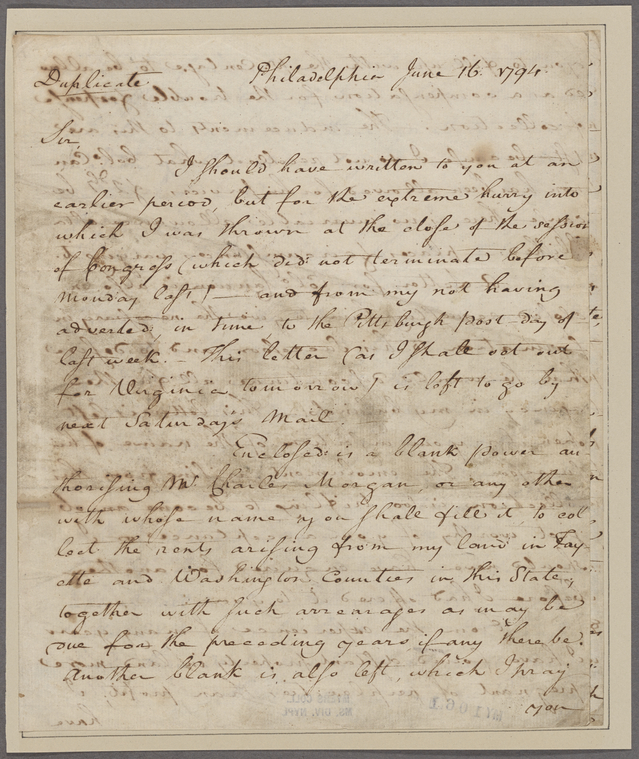 Duplicate. Philadelphia June 16. 1794.
Sir,
I should have written to you at an
earlier period, but for the extreme hurry into
which I was thrown at the close of the session
of Congress (which did not terminate before
monday last) — and from my not having
adverted, in time to the Pittsburgh post day of
last week. This letter (as I shall set out
for Virginia tomorrow) is left to go by
next Saturdays Mail.
Enclosed is a blank power au
thorising Mr. Charles Morgan, or any other
with whose name you shall fill it, to col
lect the rents arising from my land in Fay
ette and Washington Counties in this State,
together with such arrearages as may be
due for the preceding years if any there be.
Another blank is also left, which I pray
you